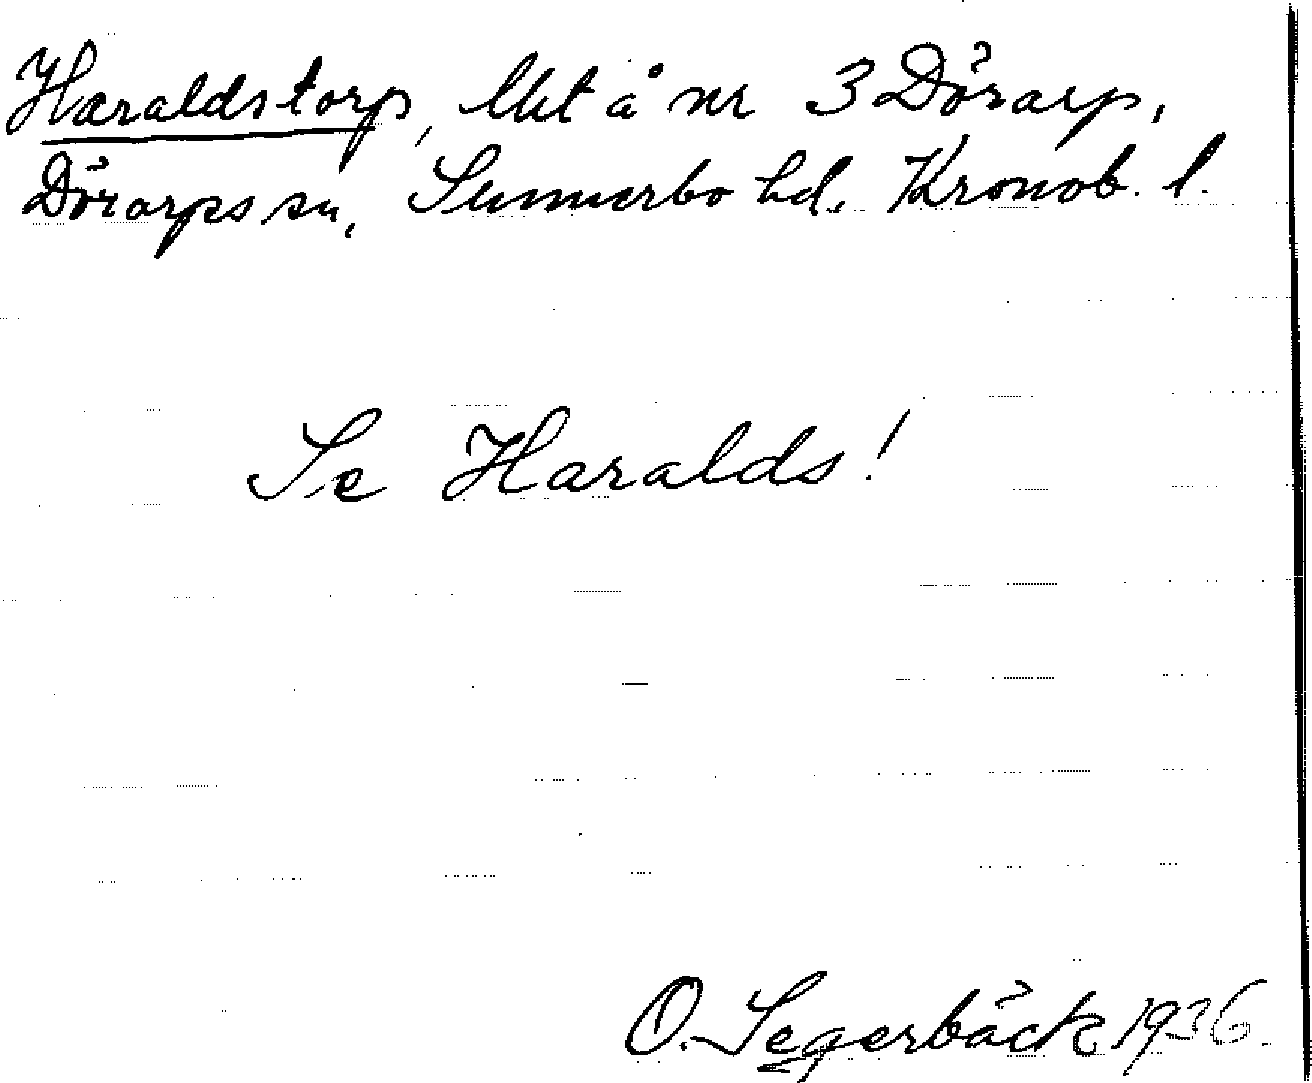 Haraldstorp, lht å nr 3 Dörarp,
Dörarps sn, Sunnerbo hd. Kronob. l.
Se Haralds!
O. Segerbäck 1936.